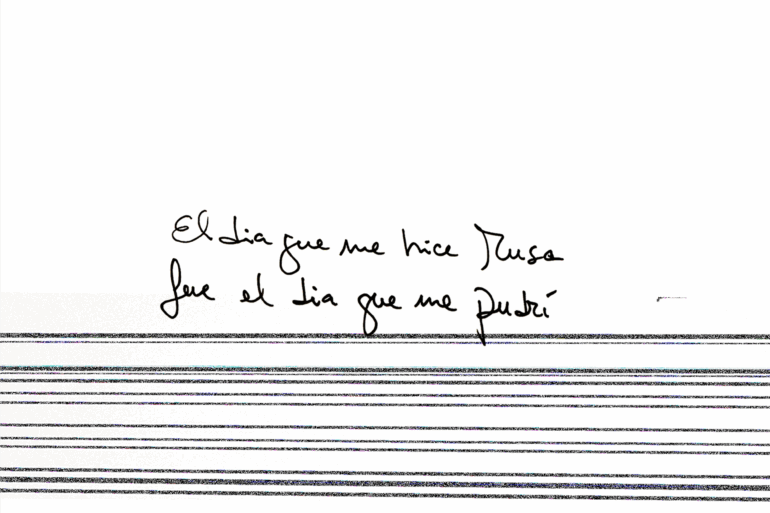 El dia que me hice Musa
fue el dia que me pudrí